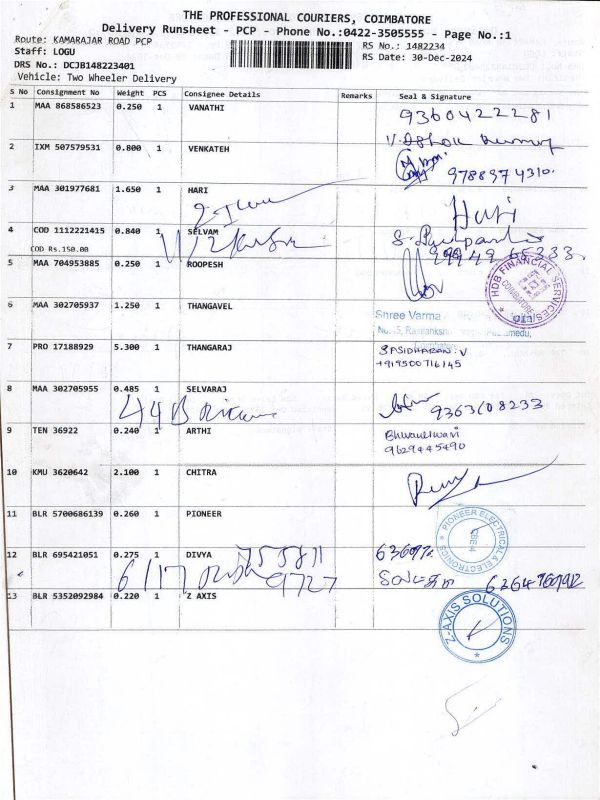 THE PROFESSIONAL COURIERS, COIMBATORE
Delivery Runsheet - PCP - Phone No.:0422-3505555 - Page No.:1
Route: KAMARAJAR ROAD PCP
RS No.: 1482234
Staff: LOGU
RS Date: 30-Dec-2024
DRS No.: DCJB148223401
Vehicle: Two Wheeler Delivery
S No Consignment No Weight PCS Consignee Details Remarks Seal & Signature
1 MAA 868586523 0.250 1 VANATHI 9360422281
V. Ashok Kumar
2 IXM 507579531 0.800 1 VENKATEH 9788974310
3 MAA 301977681 1.650 1 HARI Hari
4 COD 1112221415 0.840 1 SELVAM
COD RS.150.00
5 MAA 704953885 0.250 1 ROOPESH
HDB FINANCIAL SERVICES LTD COIMBATORE
6 MAA 302705937 1.250 1 THANGAVEL Shree Varma
7 PRO 17188929 5.300 1 THANGARAJ SASIDHARAN.V
+919500716145
8 MAA 302705955 0.485 1 SELVARAJ 9363108233
9 TEN 36922 0.240 1 ARTHI Bhuvaneswari
9629445490
10 KMU 3620642 2.100 1 CHITRA
11 BLR 5700686139 0.260 1 PIONEER
PIONEER ELECTRICAL & ELECTRONICS
12 BLR 695421051 0.275 1 DIVYA
13 BLR 5352092984 0.220 1 Z AXIS
Z-AXIS SOLUTIONS